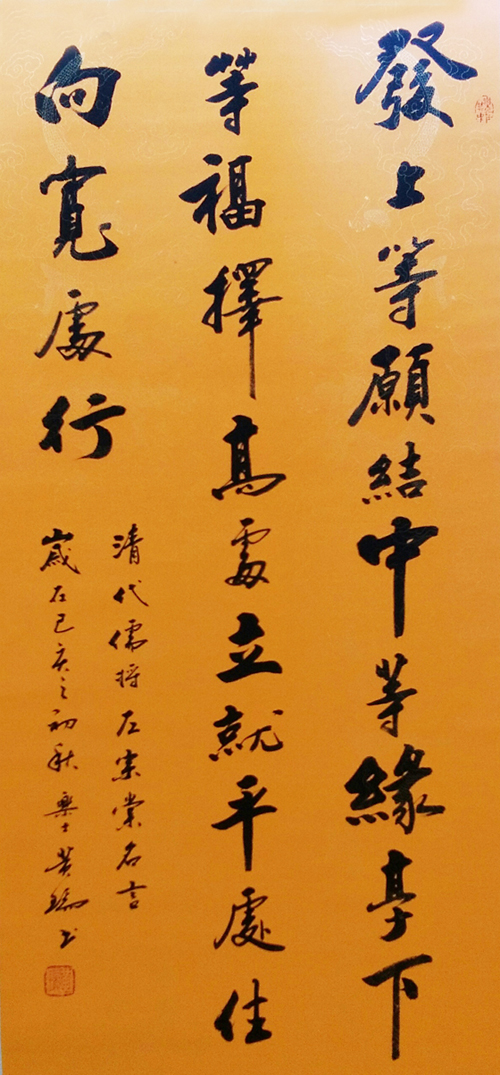 發上等願結中等緣享下
等福擇高處立就平處住
向寬處行
清代儒將左宗棠名言
歲在己亥之初秋 樂士黃瑞書